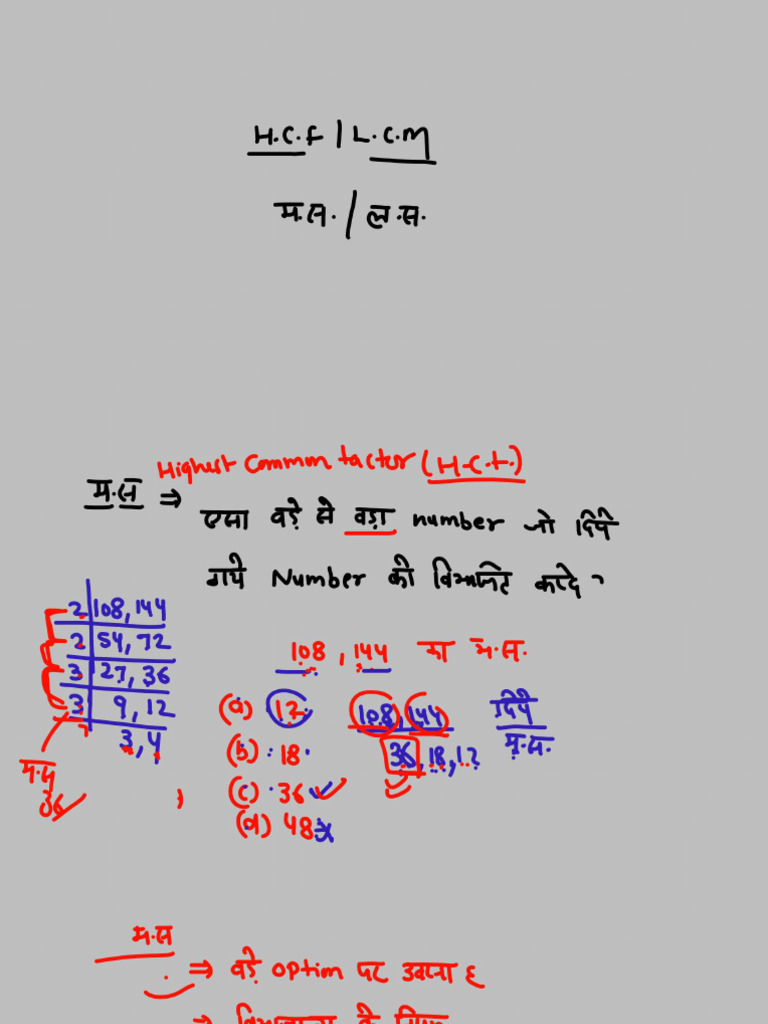 H.C.F | L.C.M
म.स. / ल.स.
Highest Common factor (H.C.f.)
म.स ⇒ एसा बड़े से बड़ा number जो दिये
गये Number को विभाजित करदे ?
108, 144 का म.स.
2 | 108, 144
2 | 54, 72
3 | 27, 36
3 | 9, 12
3, 4
म.स
36
(a) 12
(b) 18
(c) 36 ✓
(d) 48 x
108, 144 दिये
36, 18, 12 म.स.
म.स
⇒ बड़े option पर
⇒ के